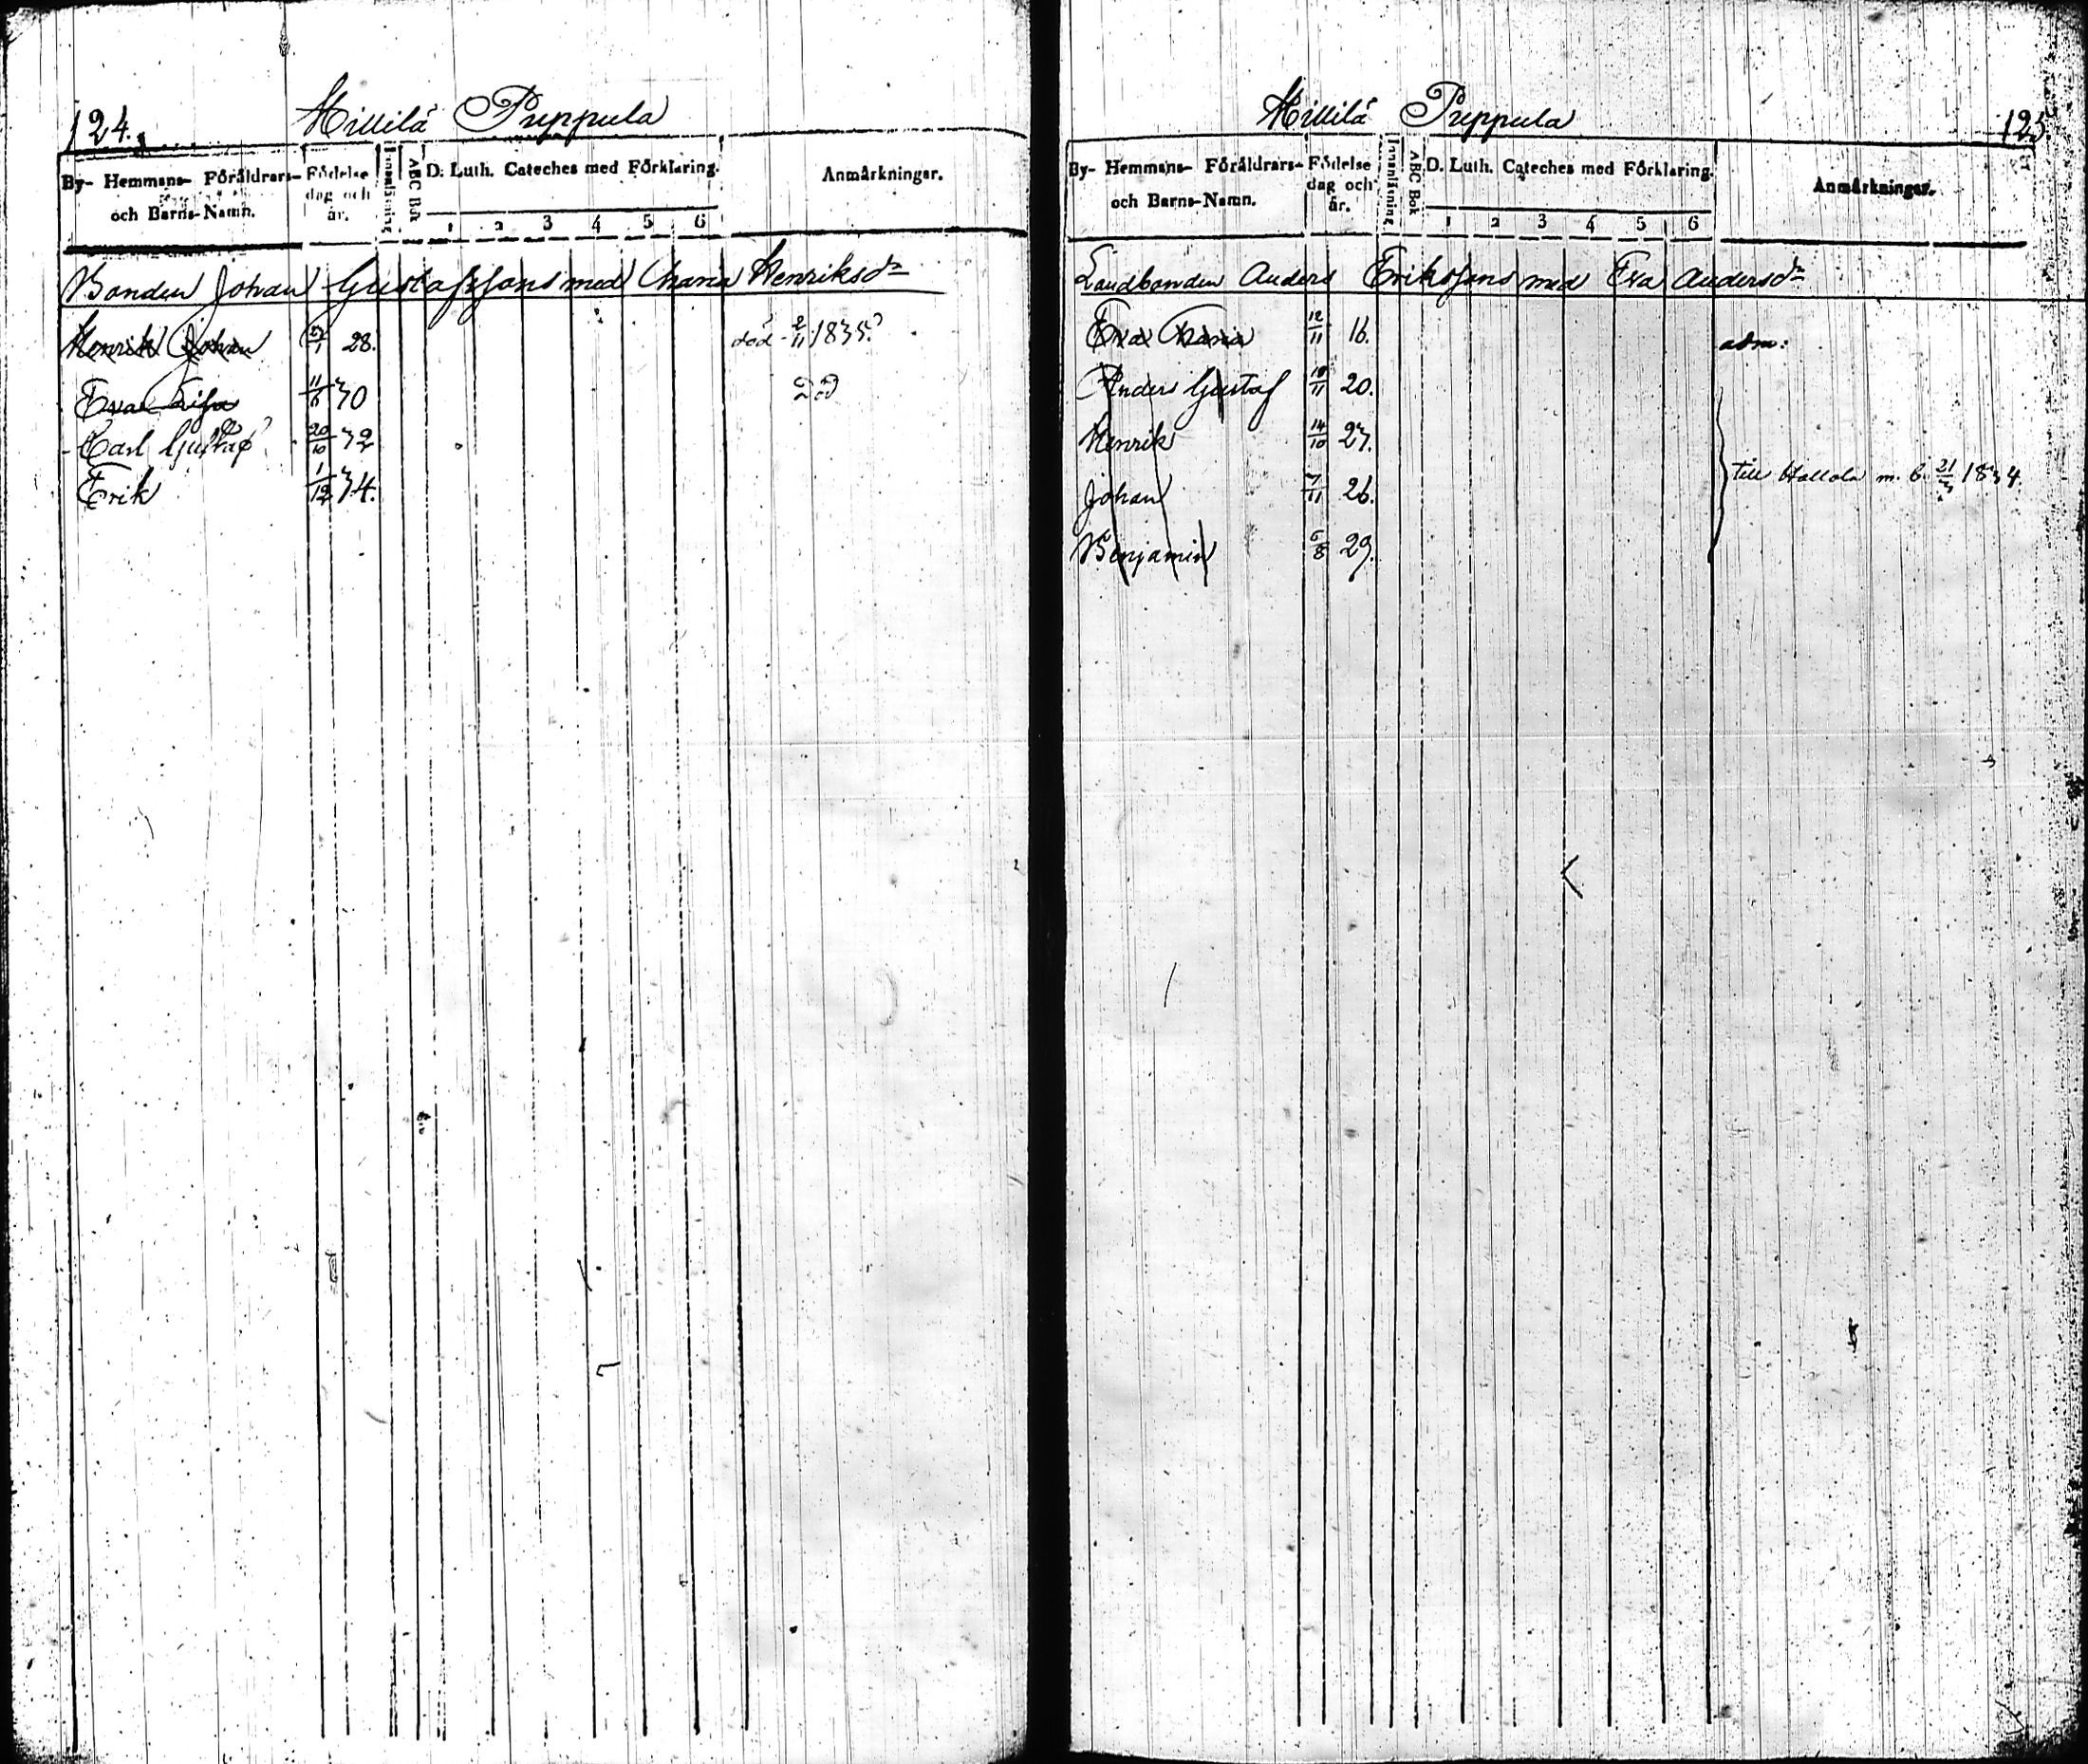 124.
Hillilä Puppula
By- Hemmans- Föräldrars- och Barns-Namn. Födelse dag och år. Innanläsning ABC Bok D. Luth. Cateches med Förklaring. 1 2 3 4 5 6 Anmärkningar.
Bonden Johan Gustafssons med Maria Henriksdr
Henrik Johan /1 28. död 2/11 1835.
Eva Lisa 11/ 30 D:o
Carl Gustaf 20/10 32
Erik 1/12 34.
Hillilä Puppula
125.
By- Hemmans- Föräldrars- och Barns-Namn. Födelse dag och år. Innanläsning ABC Bok D. Luth. Cateches med Förklaring. 1 2 3 4 5 6 Anmärkningar.
Landbonden Anders Erikssons med Eva Andersdr
Eva Maria 12/11 16. adm:
Anders Gustaf /11 20.
Henrik 14/10 23.
Johan 7/11 26. till Hollola m. b. 21/3 1834.
Benjamin 6/8 29.